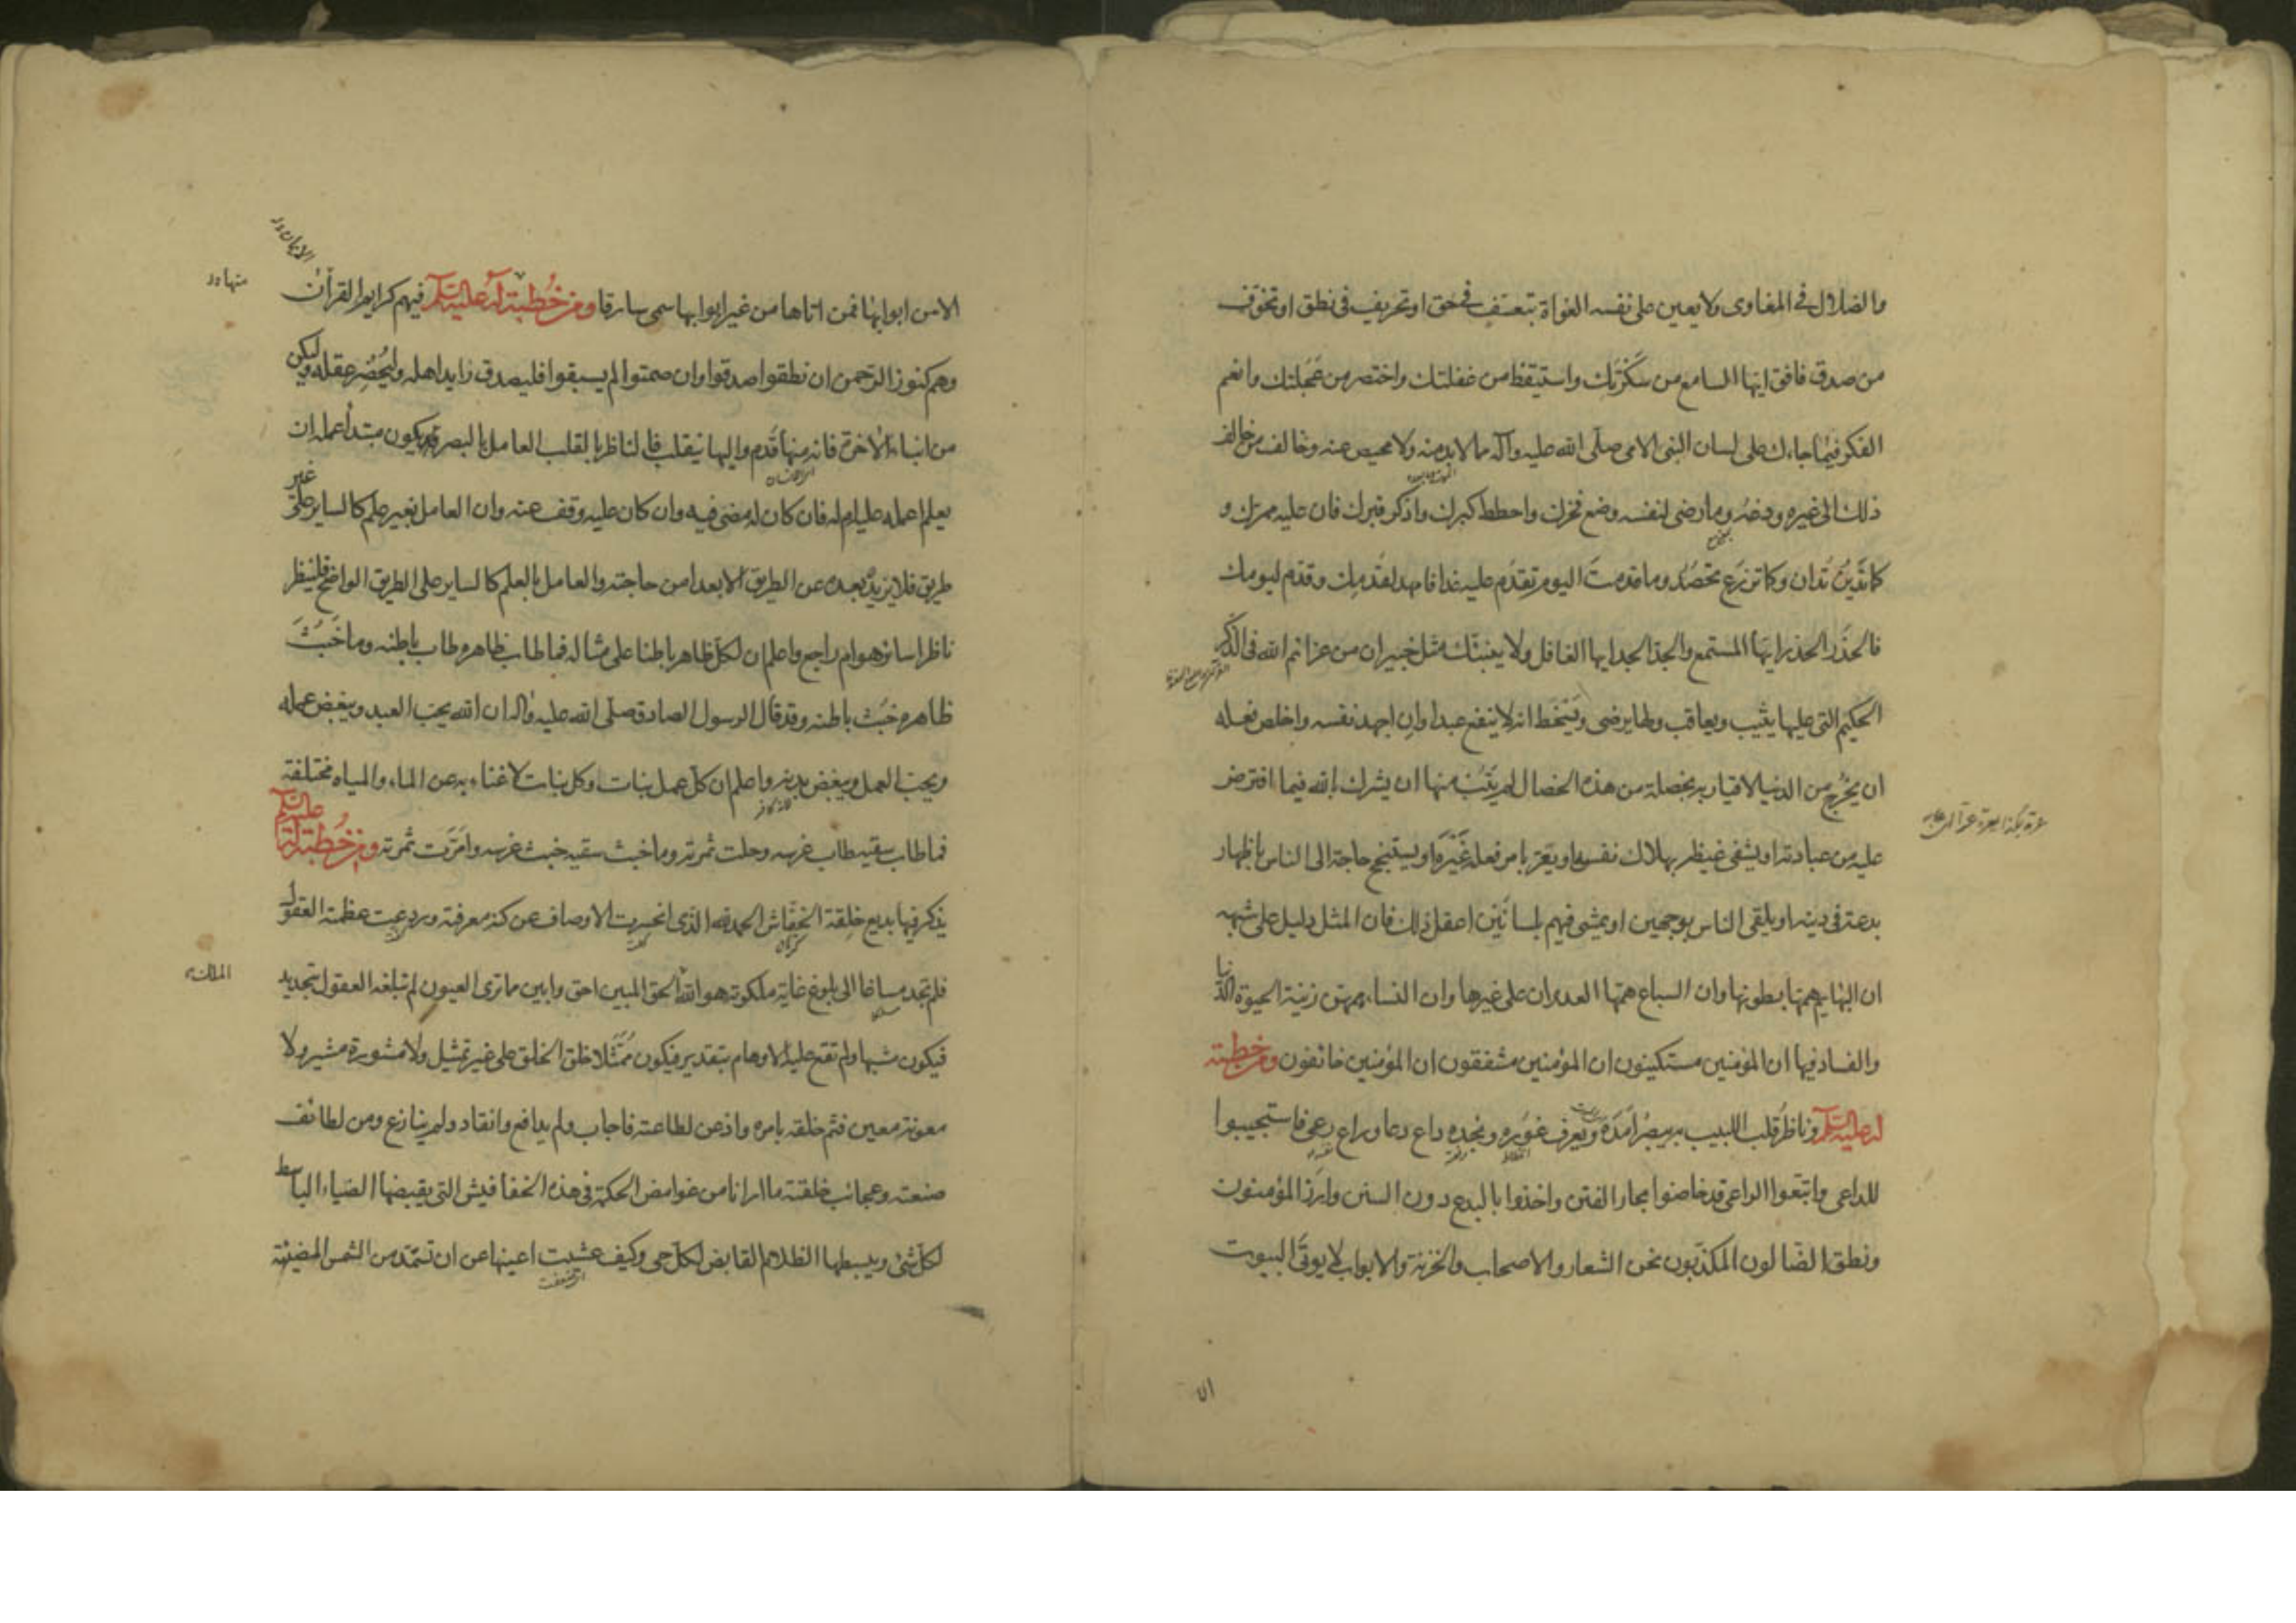 والضلال في المغاوى ولا يعين على نفسه الغواة بتعسف في حق او تحريف في نطق او تخوف
من صدق فافق ايها السامع من سكرتك واستيقظ من غفلتك واختصر من عجلتك وانعم
الفكر فيما جاءك على لسان النبى الامى صلى الله عليه وآله مما لا بد منه ولا محيص عنه وخالف من خالف
ذلك الى غيره ودعه وما رضى لنفسه وضع فخرك واحطط كبرك واذكر قبرك فان عليه ممرك و
كما تدين تدان وكما تزرع تحصد وما قدمت اليوم تقدم عليه غدا فامهد لقدمك وقدم ليومك
فالحذر الحذر ايها المستمع والجد الجد ايها الغافل ولا ينبئك مثل خبير ان من عزائم الله فى الذكر
الحكيم التى عليها يثيب ويعاقب ولها يرضى ويسخط انه لا ينفع عبدا وان اجهد نفسه واخلص فعله
ان يخرج من الدنيا لاقيا ربه بخصلة من هذه الخصال لم يتب منها ان يشرك بالله فيما افترض
عليه من عبادته او يشفى غيظه بهلاك نفسه او يقر بامر فعله غيره او يستنجح حاجة الى الناس باظهار
بدعة فى دينه او يلقى الناس بوجهين او يمشى فيهم بلسانين اعقل ذلك فان المثل دليل على شبهه
ان البهايم همها بطونها وان السباع همها العدوان على غيرها وان النساء همهن زينة الحيوة الدنيا
والفساد فيها ان المؤمنين مستكينون ان المؤمنين مشفقون ان المؤمنين خائفون ومن خطبة
له عليه السلام وناظر قلب اللبيب به يبصر امده ويعرف غوره ونجده داع دعا وراع رعى فاستجيبوا
للداعى واتبعوا الراعى قد خاضوا بحار الفتن واخذوا بالبدع دون السنن وارز المؤمنون
ونطق الضالون المكذبون نحن الشعار والاصحاب والخزنة والابواب لا يوتى البيوت
الا
الا من ابوابها فمن اتاها من غير ابوابها سمى سارقا ومن خطبة له عليه السلام فيهم كرايم القرآن
منها
وهم كنوز الرحمن ان نطقوا صدقوا وان صمتوا لم يسبقوا فليصدق زايد اهله وليحضر عقله وليكن
من ابناء الاخرة فانه منها قدم واليها ينقلب فالناظر بالقلب العامل بالبصر يكون مبتدأ عمله ان
يعلم اعمله عليه ام له فان كان له مضى فيه وان كان عليه وقف عنه وان العامل بغير علم كالساير على غير
طريق فلا يزيده بعده عن الطريق الا بعدا من حاجته والعامل بالعلم كالساير على الطريق الواضح فلينظر
ناظر اساير هو ام راجع واعلم ان لكل ظاهر باطنا على مثاله فما طاب ظاهره طاب باطنه وما خبث
ظاهره خبث باطنه وقد قال الرسول الصادق صلى الله عليه واله ان الله يحب العبد ويبغض عمله
ويحب العمل ويبغض بدنه واعلم ان كل عمل نبات وكل نبات لا غناء به عن الماء والمياه مختلفة
فما طاب سقيه طاب غرسه وحلت ثمرته وما خبث سقيه خبث غرسه وامرت ثمرته ومن خطبة له عليه السلام
يذكر فيها بديع خلقة الخفاش الحمد لله الذى انحسرت الاوصاف عن كنه معرفته وردعت عظمته العقول
فلم تجد مساغا الى بلوغ غاية ملكوته هو الله الحق المبين احق وابين مما ترى العيون لم تبلغه العقول بتحديد
الملك
فيكون مشبها ولم تقع عليه الاوهام بتقدير فيكون ممثلا خلق الخلق على غير تمثيل ولا مشورة مشير ولا
معونة معين فتم خلقه بامره واذعن لطاعته فاجاب ولم يدافع وانقاد ولم ينازع ومن لطائف
صنعته وعجائب خلقته ما ارانا من غوامض الحكمة فى هذه الخفافيش التى يقبضها الضياء الباسط
لكل شئ ويبسطها الظلام القابض لكل حى وكيف عشيت اعينها عن ان تستمد من الشمس المضيئة